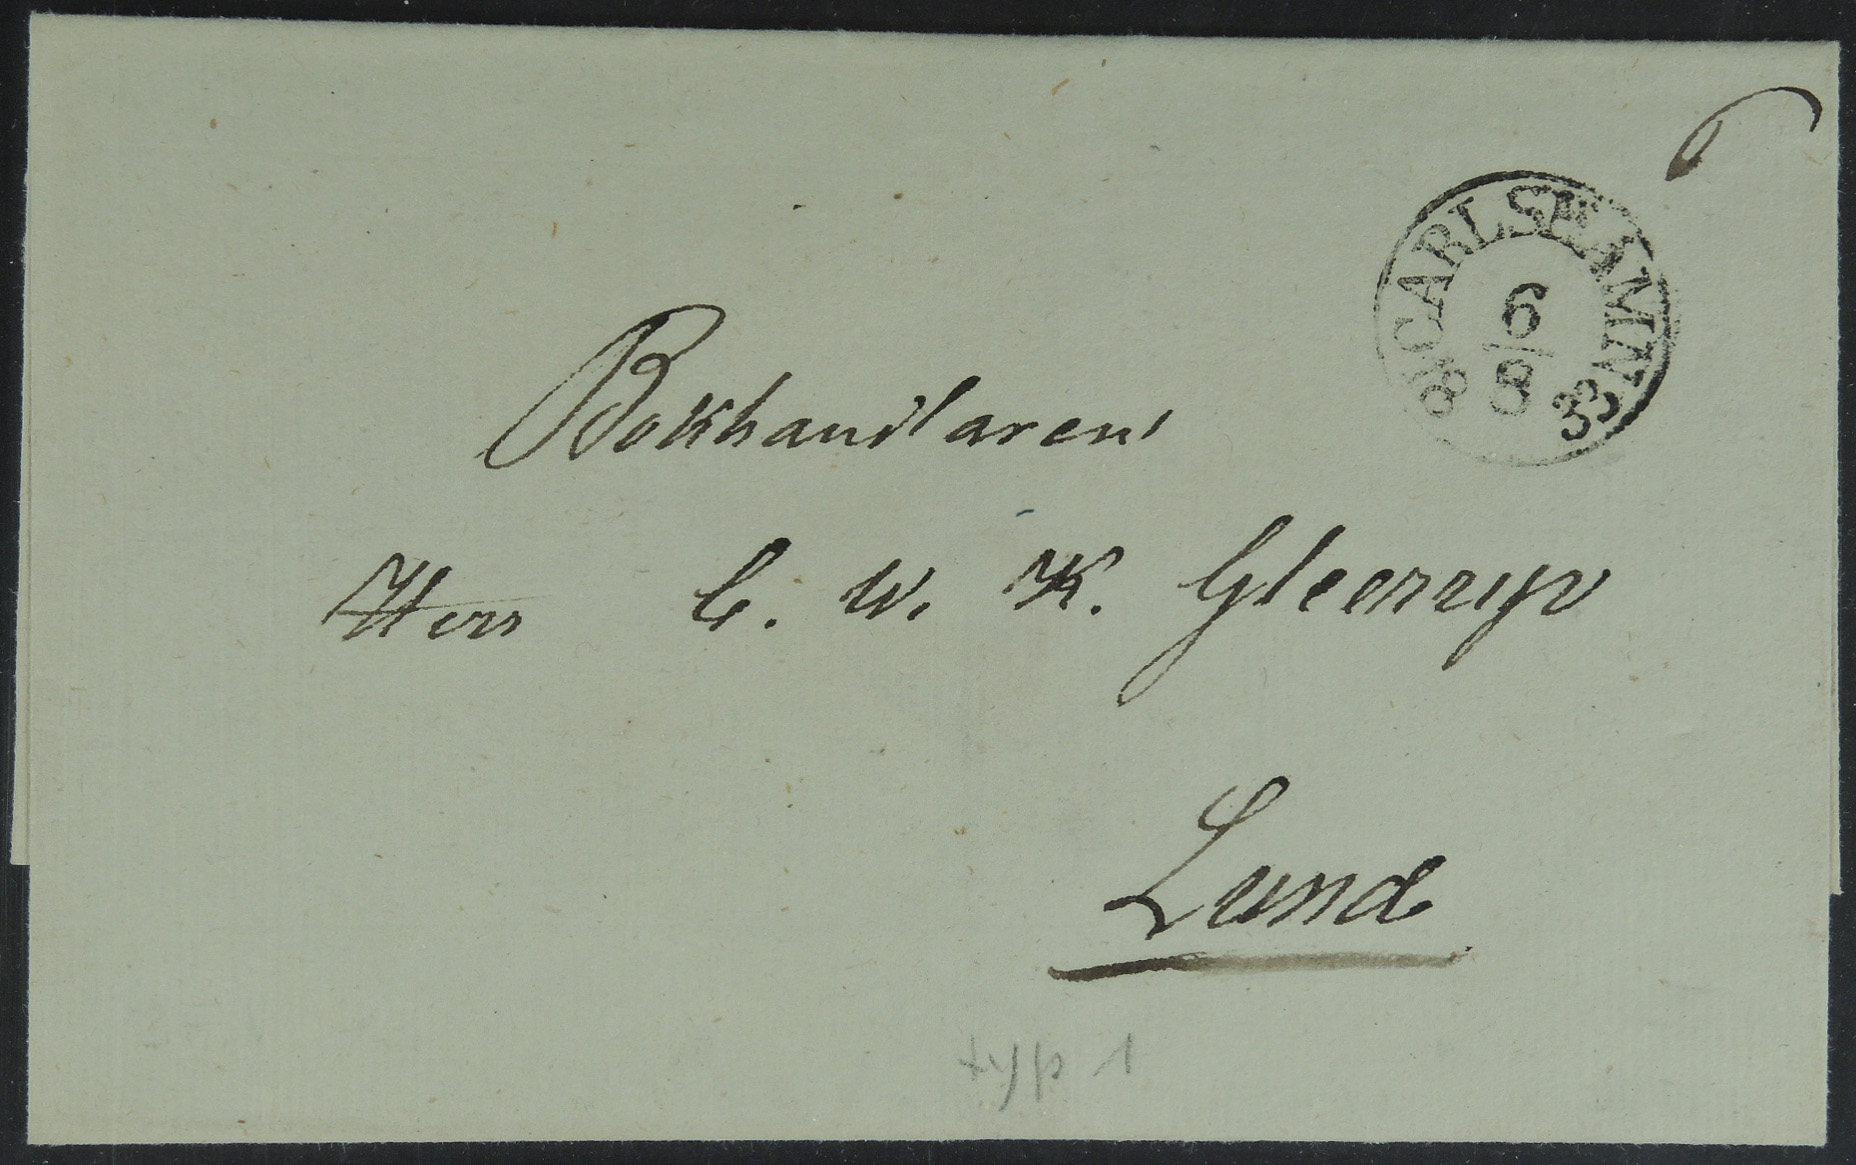 CARLSHAMN
6
8
1833
Bokhandlaren
Herr C. W. K. Gleerup
Lund
typ 1